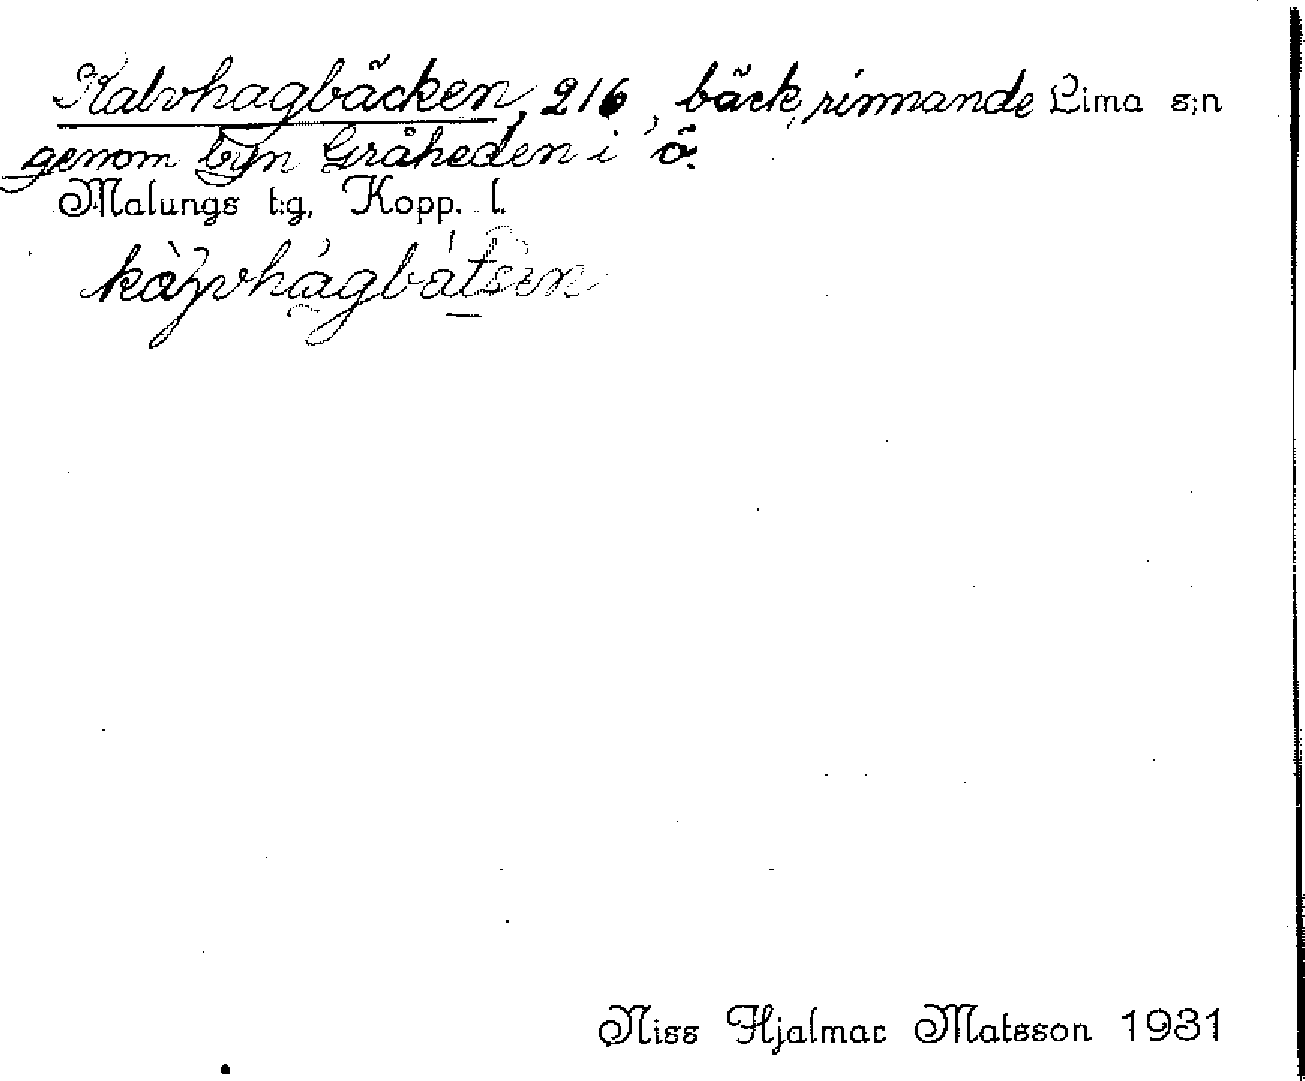 Kalvhagbäcken, 216, bäck, rinnande Lima s:n
genom byn Gråheden i ö.
Malungs t:g, Kopp. l.
Niss Hjalmar Matsson 1931